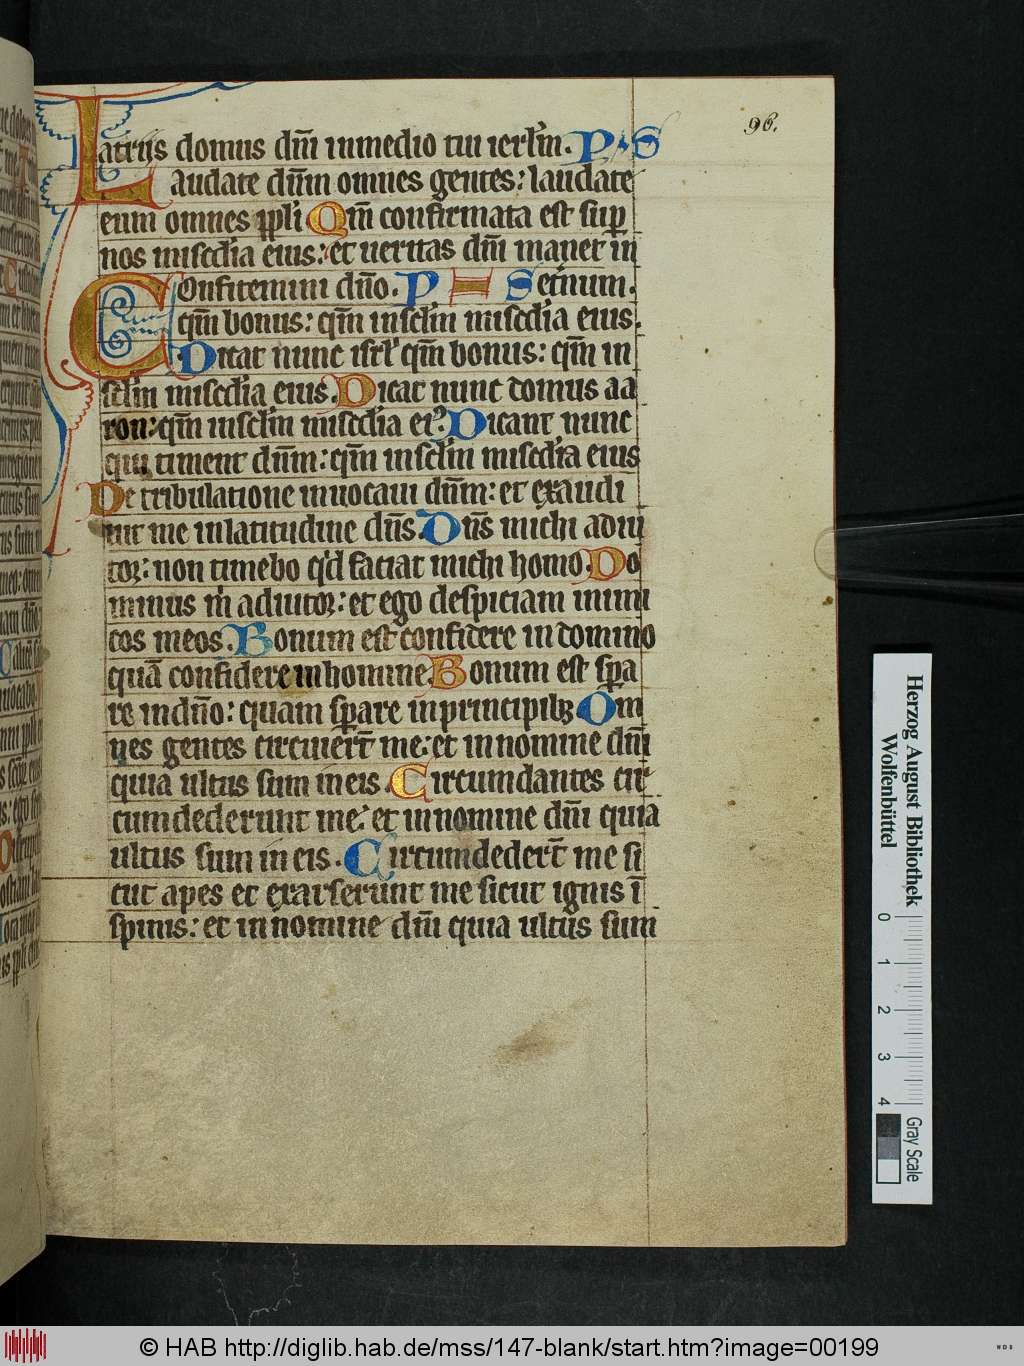 96.
atrijs domus dnī in medio tui ierl̄m. P S
Laudate dnm̄ omnes gentes: laudate
eum omnes ppl̄i Qm̄ confirmata est sup
nos misc̄dia eius: et ueritas dnī manet in
Confitemini dnō. P H S eternum.
qm̄ bonus: qm̄ in sc̄lm misc̄dia eius.
Dicat nunc isrl̄ qm̄ bonus: qm̄ in
sc̄lm misc̄dia eius. Dicat nunc domus aa
ron: qm̄ in sc̄lm misc̄dia ei9. Dicant nunc
qui timent dnm̄: qm̄ in sc̄lm misc̄dia eius
De tribulatione inuocaui dnm̄: et exaudi
uit me in latitudine dns̄. Dns̄ michi adiu
tor: non timebo qd̄ faciat michi homo. Do
minus m adiutor: et ego despiciam inimi
cos meos. Bonum est confidere in domino
quā confidere in homine. Bonum est spa
re in dnō: quam spare in principib3 Om
nes gentes circuiert̄ me: et in nomine dnī
quia ultus sum in eis. Circumdantes cir
cumdederunt me: et in nomine dnī quia
ultus sum in eis. Circumdedert̄ me si
cut apes et exarserunt me sicut ignis ī
spinis: et in nomine dnī quia ultus sum
Herzog August Bibliothek
Wolfenbüttel
0 1 2 3 4
Gray Scale
© HAB http://diglib.hab.de/mss/147-blank/start.htm?image=00199